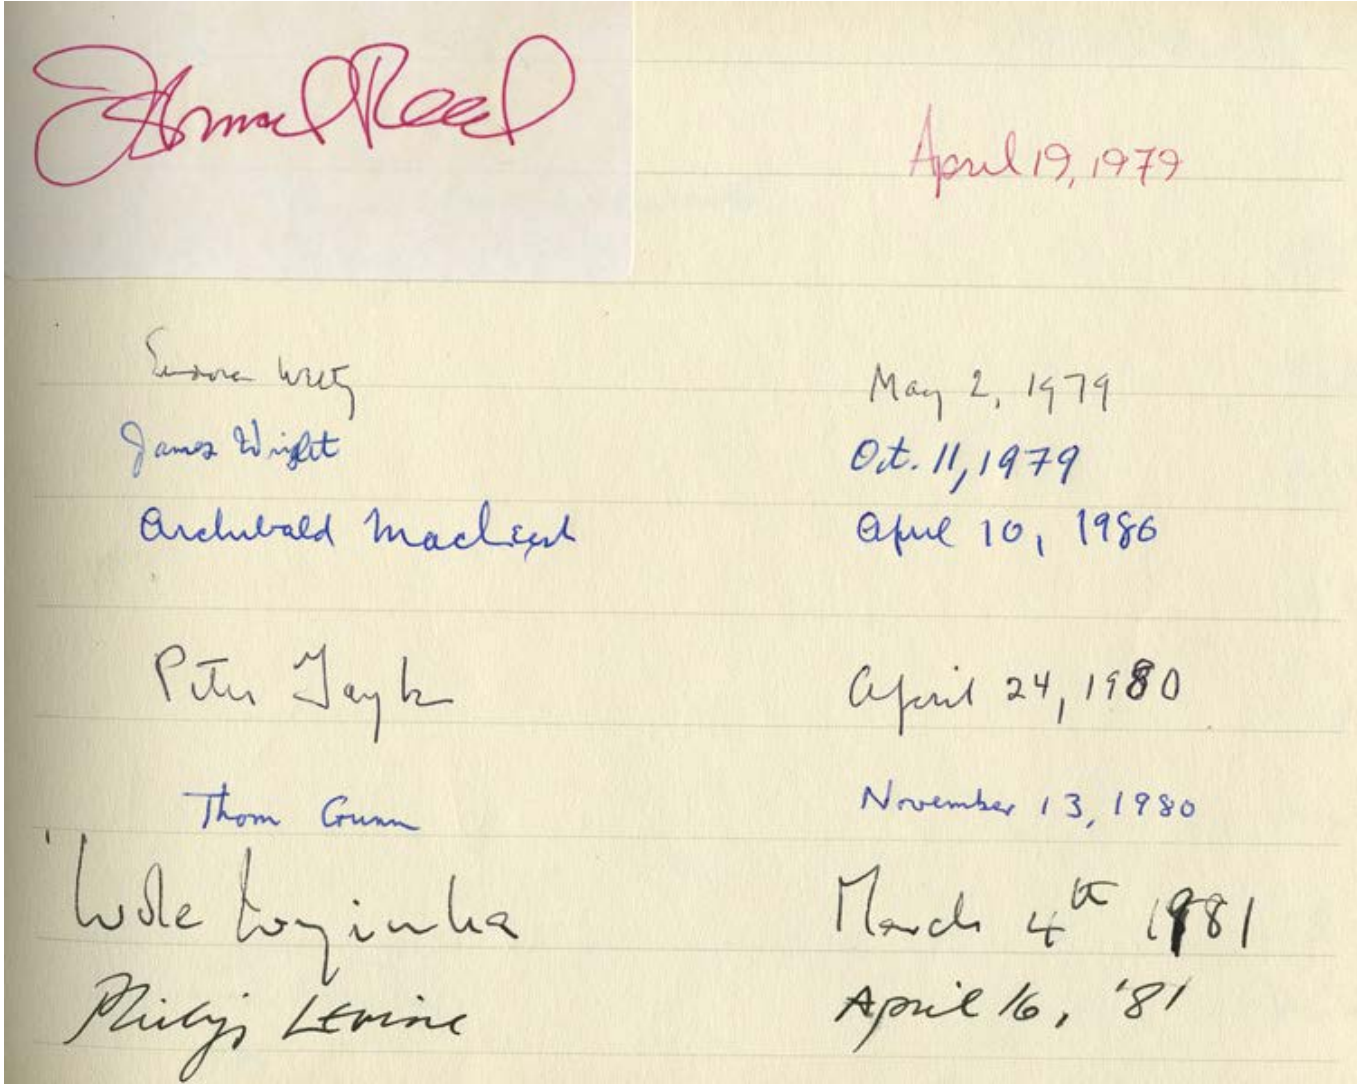 Ishmael Reed April 19, 1979
Eudora Welty May 2, 1979
James Wright Oct. 11, 1979
Archibald MacLeish April 10, 1986
Peter Taylor April 24, 1980
Thom Gunn November 13, 1980
Wole Soyinka March 4th 1981
Philip Levine April 16, '81